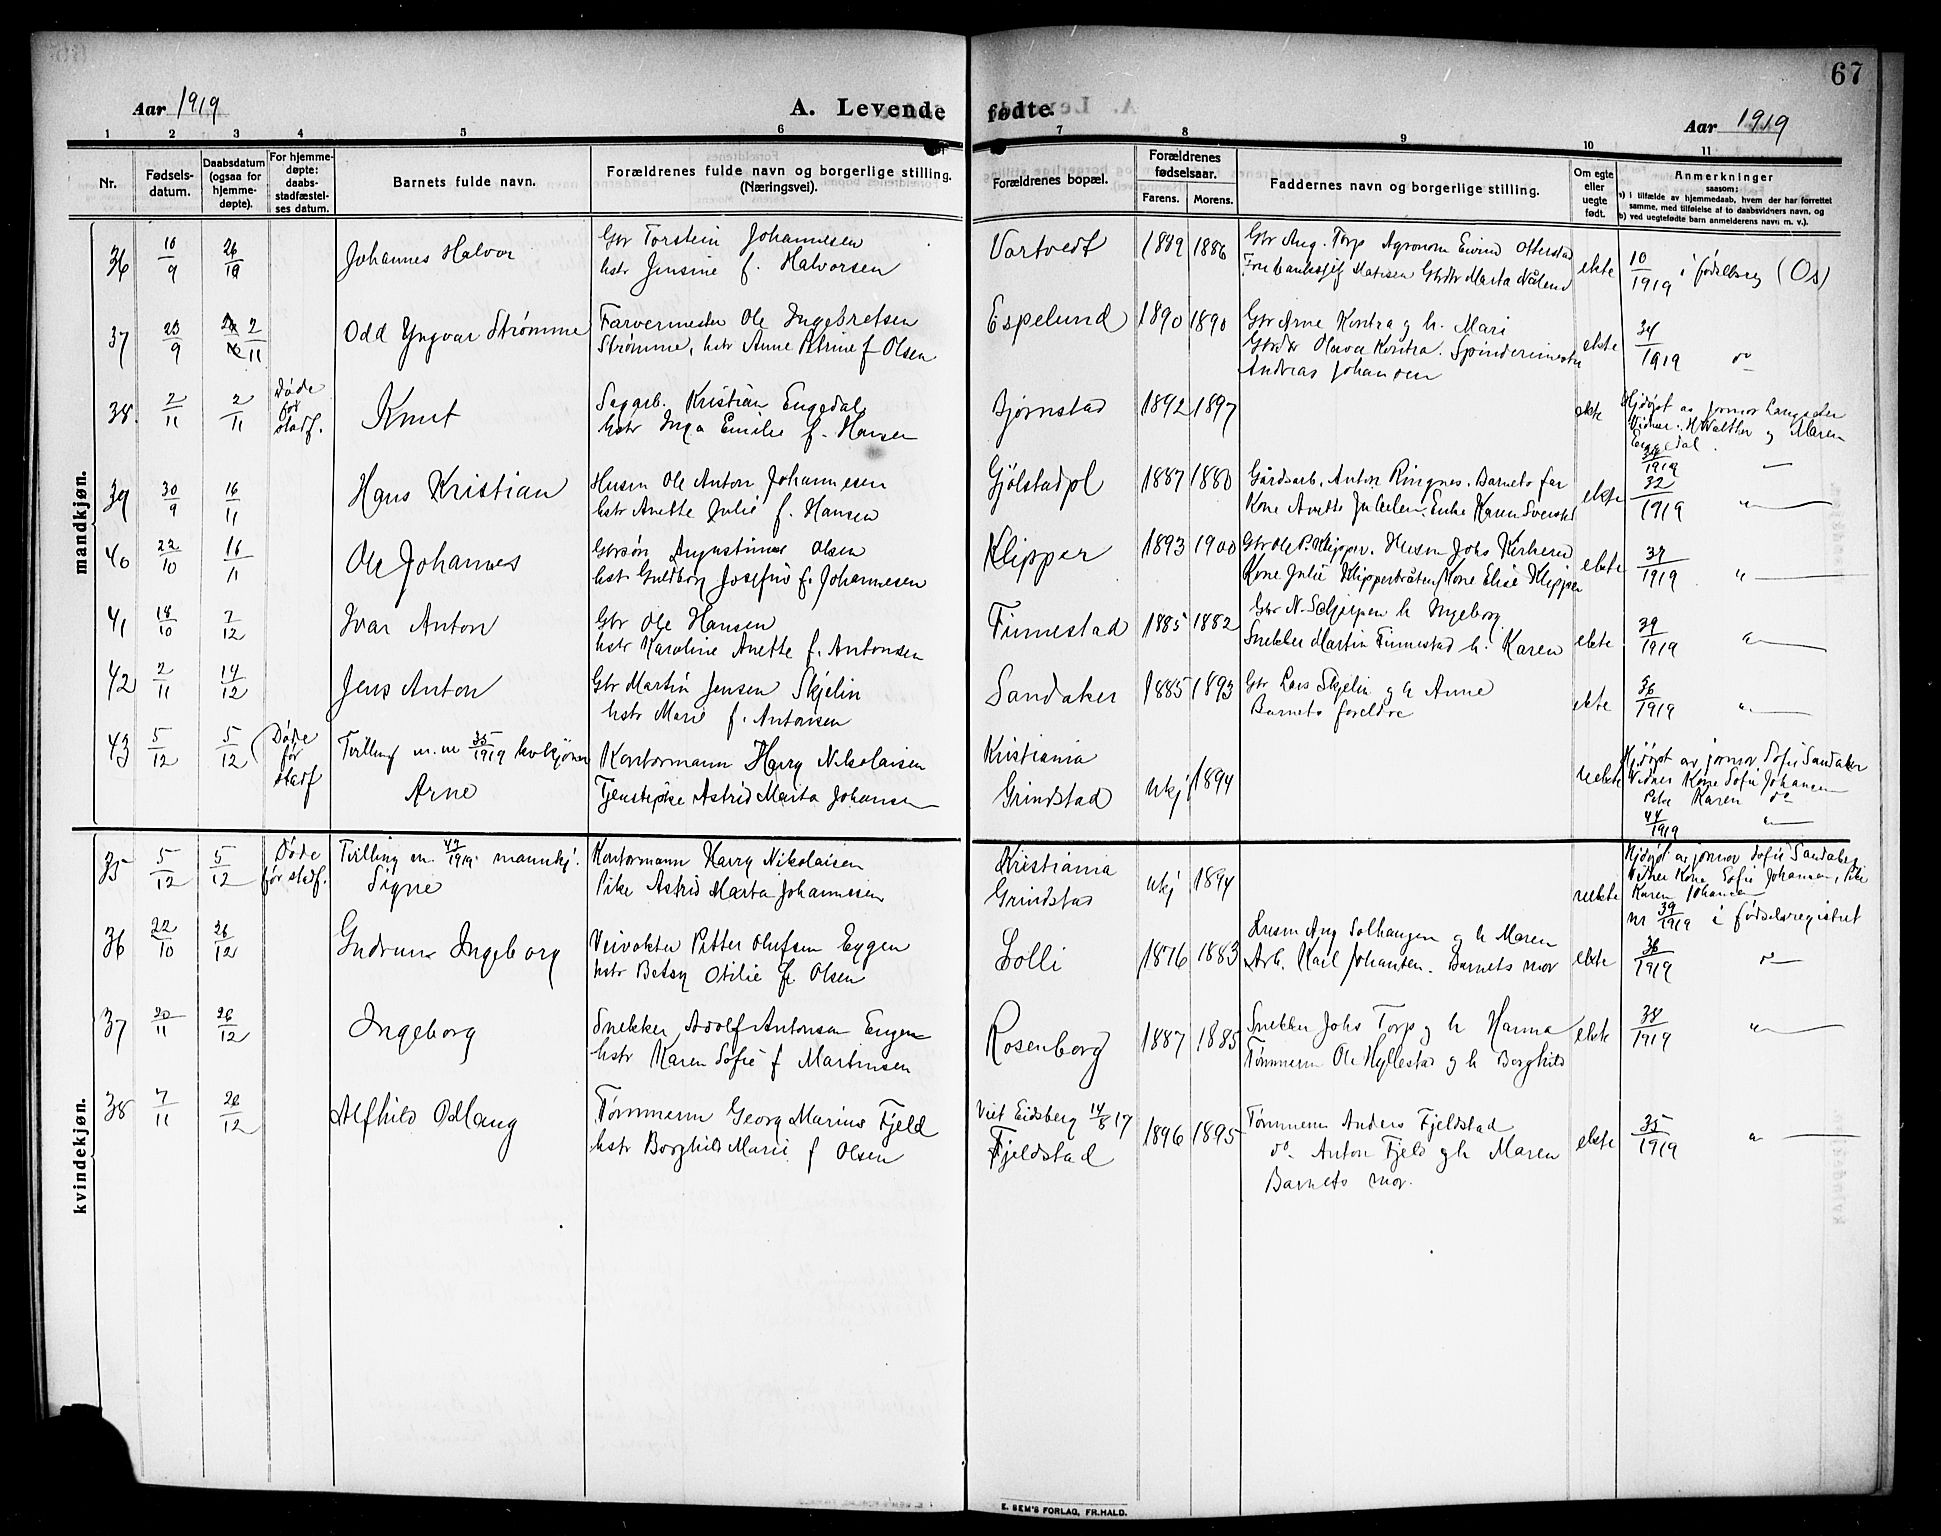 67
Aar 1919
A. Levende fødte.
Aar 1919
1 2 3 4 5 6 7 8 9 10 11
Nr.
Fødsels-
datum.
Daabsdatum
(ogsaa for
hjemme-
døpte).
For hjemme-
døpte:
daabs-
stadfæstel-
ses datum.
Barnets fulde navn.
Forældrenes fulde navn og borgerlige stilling.
(Næringsvei).
Forældrenes bopæl.
Forældrenes
fødselsaar.
Farens. Morens.
Faddernes navn og borgerlige stilling.
Om egte
eller
uegte
født.
Anmerkninger
saasom:
a) i tilfælde av hjemmedaab, hvem der har forrettet
samme, med tilføielse af to daabsvidners navn, og
b) ved uegtefødte barn anmelderens navn m. v.).
mandkjøn.
36 10/9 26/10 Johannes Halvor
Gbr Torstein Johannesen
hstr Jensine f. Halvorsen
Vortvedt 1889 1886
Gbr Aug. Torp Agronom Eivind Otterstad
Marta
ekte
10/1919 i fødselsreg (Os)
37 23/9 2/11 Odd Yngvar Strømme
Farvermester Ole Ingebretsen
Strømme, hstr Anne Petrine f Olsen
Espelund 1890 1890
Gbr Arne Kontra g h. Mari
Gbrdtr Olava Kontra. Spinderimester
Andreas Johansen
ekte
34/1919 do
38. 2/11 2/11
Døde
før
stadf.
Knut
Sagarb. Kristian Engedal
hstr Inga Emilie f. Hansen
Bjørnstad 1892 1897
ekte
Hjdøpt av jormor Langseter
Vidner: H Walther og Maren
Engedal.
1919
39 30/9 16/11 Hans Kristian
Husm Ole Anton Johannesen
hstr Anette Julie f. Hansen
Gjølstadpl 1887 1880
Gårdsarb. Anton Ringnes. Barnets far
Kone Anette Enke Karen
ekte
32/1919 "
40 22/10 16/11 Ole Johannes
Gbrsøn Augustinus Olsen
hstr Guldborg Josefine f. Johannesen
Klipper 1893 1900
Gbr Ole P. Klipper. Husm Johs Kirkerud
Kone Julie Klipperbråten Kone Elise Klipper
ekte
37/1919 "
41 18/10 7/12 Ivar Anton
Gbr Ole Hansen
hstr Karoline Anette f. Antonsen
Finnestad 1885 1882
Gbr N. Schjerpen h Ingeborg
Snekker Martin Finnestad h. Karen
ekte
39/1919 "
42 2/11 14/12 Jens Anton
Gbr Martin Jensen Skjelin
hstr Marie f. Antonsen
Sandaker 1885 1893
Gbr Lars Skjelin g h Anne
Barnets foreldre
ekte
36/1919 "
43 5/12 5/12
Døde
før
stadf
Tvilling m. nr 35/1919 kvkjønn
Arne
Kontormann Harry Nikolaisen
Tjenstepike Astrid Marta Johansen
Kristiania
Grindstad
ukj 1894
uekte
Hjdøpt av jormor Sofie Sandaker
Vidner Kone Sofie Johansen
Pike Karen do
44/1919 "
kvindekjøn.
35 5/12 5/12
Døde
før stadf.
Tvilling m. 43/1919 mannkj.
Signe
Kontormann Harry Nikolaisen
Pike Astrid Marta Johannesen
Kristiania
Grindstad
ukj 1894
uekte
Hjdøpt av jormor Sofie Sandaker
Vidner Kone Sofie Johansen, Pike
Karen Johansen
nr 39/1919 i fødselsregistret
36 22/10 26/12 Gudrun Ingeborg
Veivokter Petter Olufsen Eggen
hstr Betsy Otilie f. Olsen
Lolli 1876 1883
Husm Aug Solhaugen g h Maren
Arb. Karl Johansen. Barnets mor
ekte
36/1919 do
37 20/11 26/12 Ingeborg
Snekker Adolf Antonsen Engen
hstr Karen Sofie f Martinsen
Rosenborg 1887 1885
Snekker Johs Torp g h Hanna
Tømmerm Ole Hyllestad g h Borghild
ekte
38/1919 "
38 7/11 26/12 Alfhild Odlaug
Tømmerm Georg Marius Fjeld
hstr Borghild Marie f Olsen
Viet Eidsberg 14/8 17
Fjeldstad 1896 1895
Tømmerm Anders Fjeldstad
do Anton Fjeld g h Maren
Barnets mor.
ekte
35/1919 "
E. SEM'S FORLAG, FR.HALD.